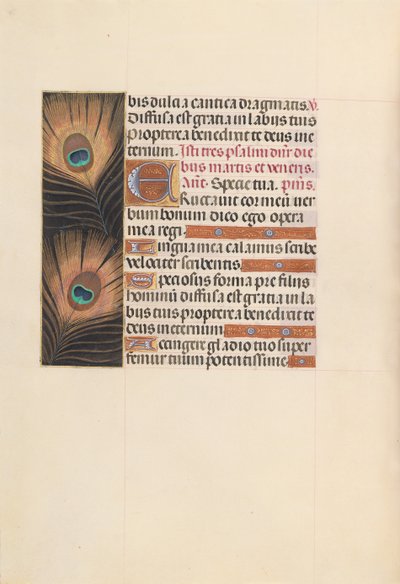 bis dulcia cantica dragmatis. V.
Diffusa est gratia in labijs tuis
Propterea benedixit te deus in e
ternum. Isti tres psalmi dicūr die
bus martis et veneris.
Añt. Specie tua. p̄ms.
Eructauit cor meū ver
bum bonum dico ego opera
mea regi.
Lingua mea calamus scribe
velociter scribentis.
Speciosus forma pre filijs
hominū diffusa est gratia in la
bijs tuis propterea benedixit te
deus in eternum
Accingere gladio tuo super
femur tuum potentissime.